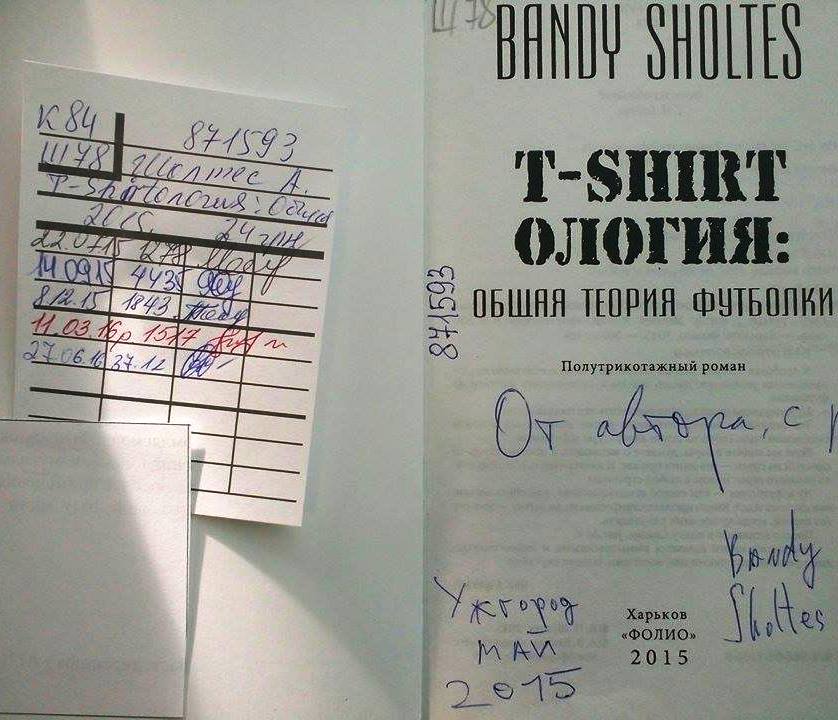 К 84
871593
Ш78
Шолтес А.
T-Shirtология: Общая
2015. 24 грн
22.07.15 278
14.09.15 4435
8.12.15 1843
11.03.16р 1517
27.06.16 3712
Ш78
BANDY SHOLTES
T-SHIRT
ОЛОГИЯ:
ОБЩАЯ ТЕОРИЯ ФУТБОЛКИ
871593
Полутрикотажный роман
От автора, с
Bandy
Sholtes
Ужгород
май
2015
Харьков
«ФОЛИО»
2015